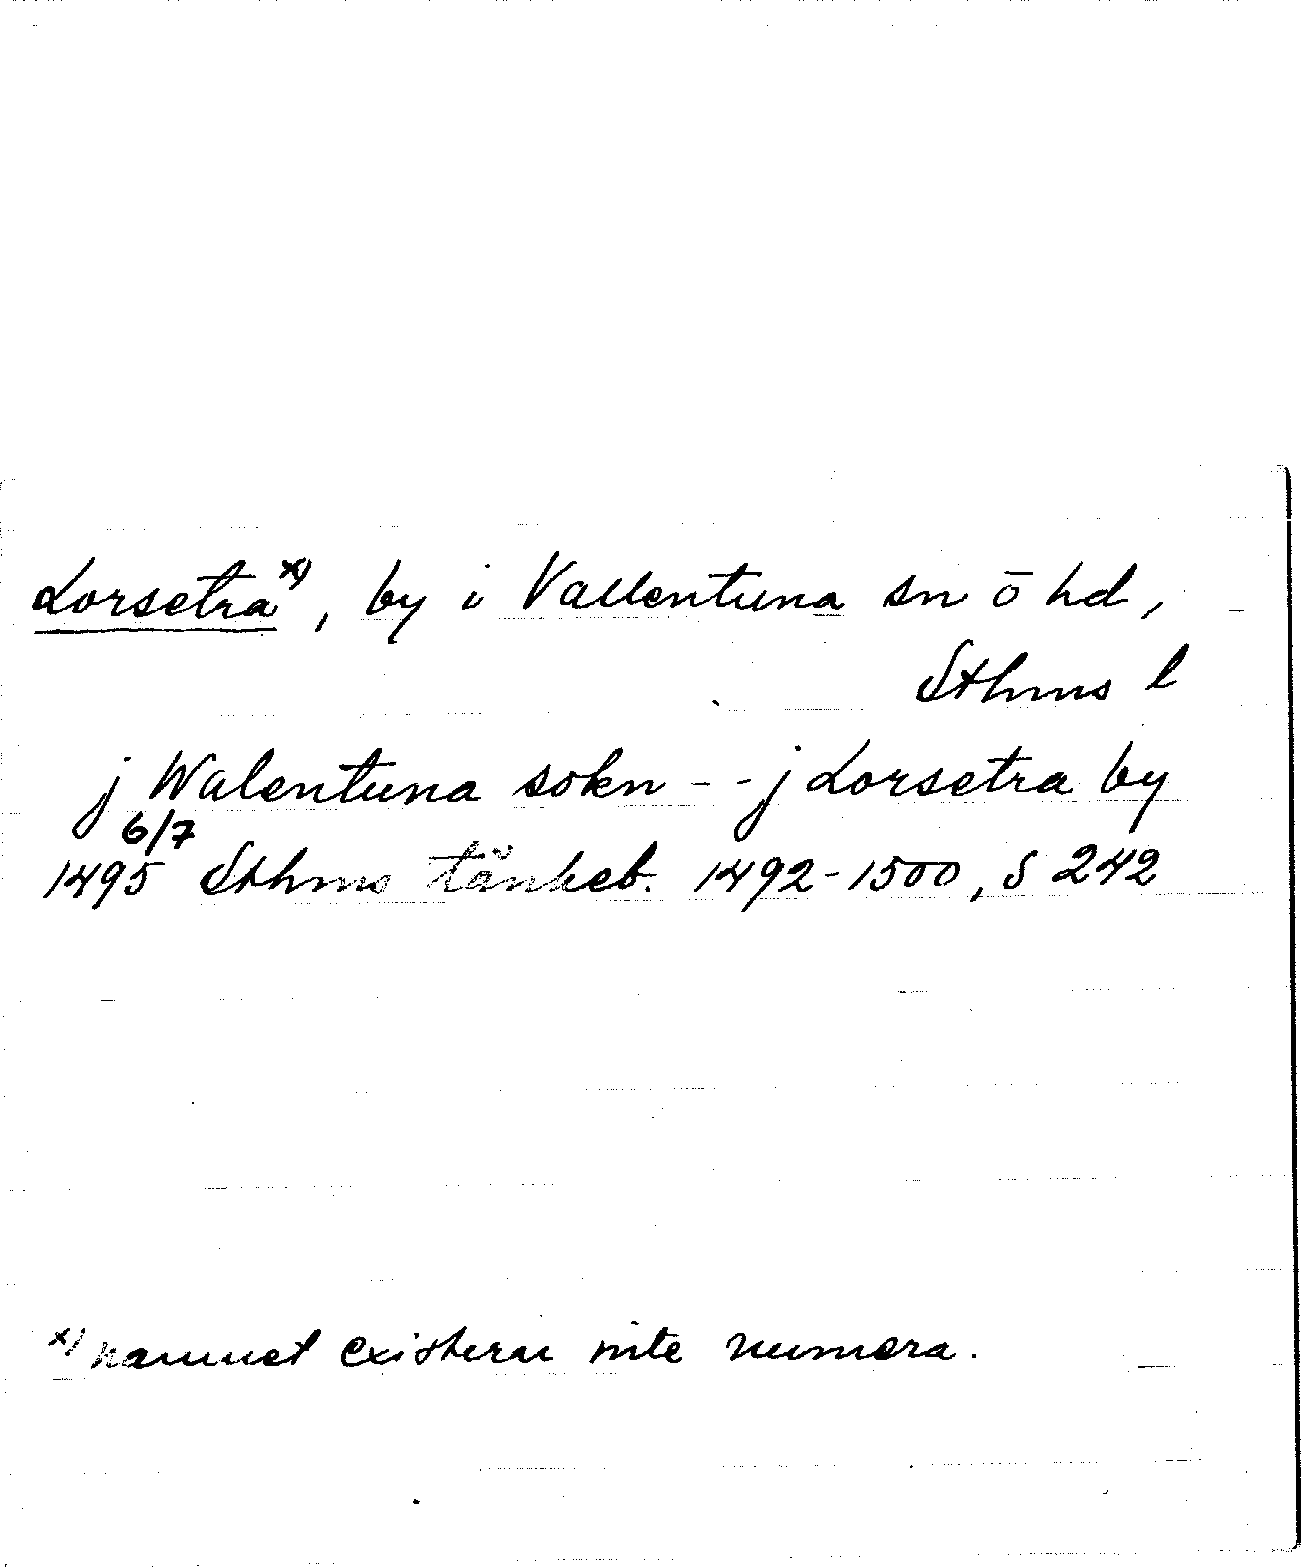 Lorsetra x), by i Vallentuna sn o hd,
Sthms l
j Walentuna sokn - - j Lorsetra by
6/7
1495 Sthms tänkeb. 1492-1500, S 242
x) namnet existerar inte numera.